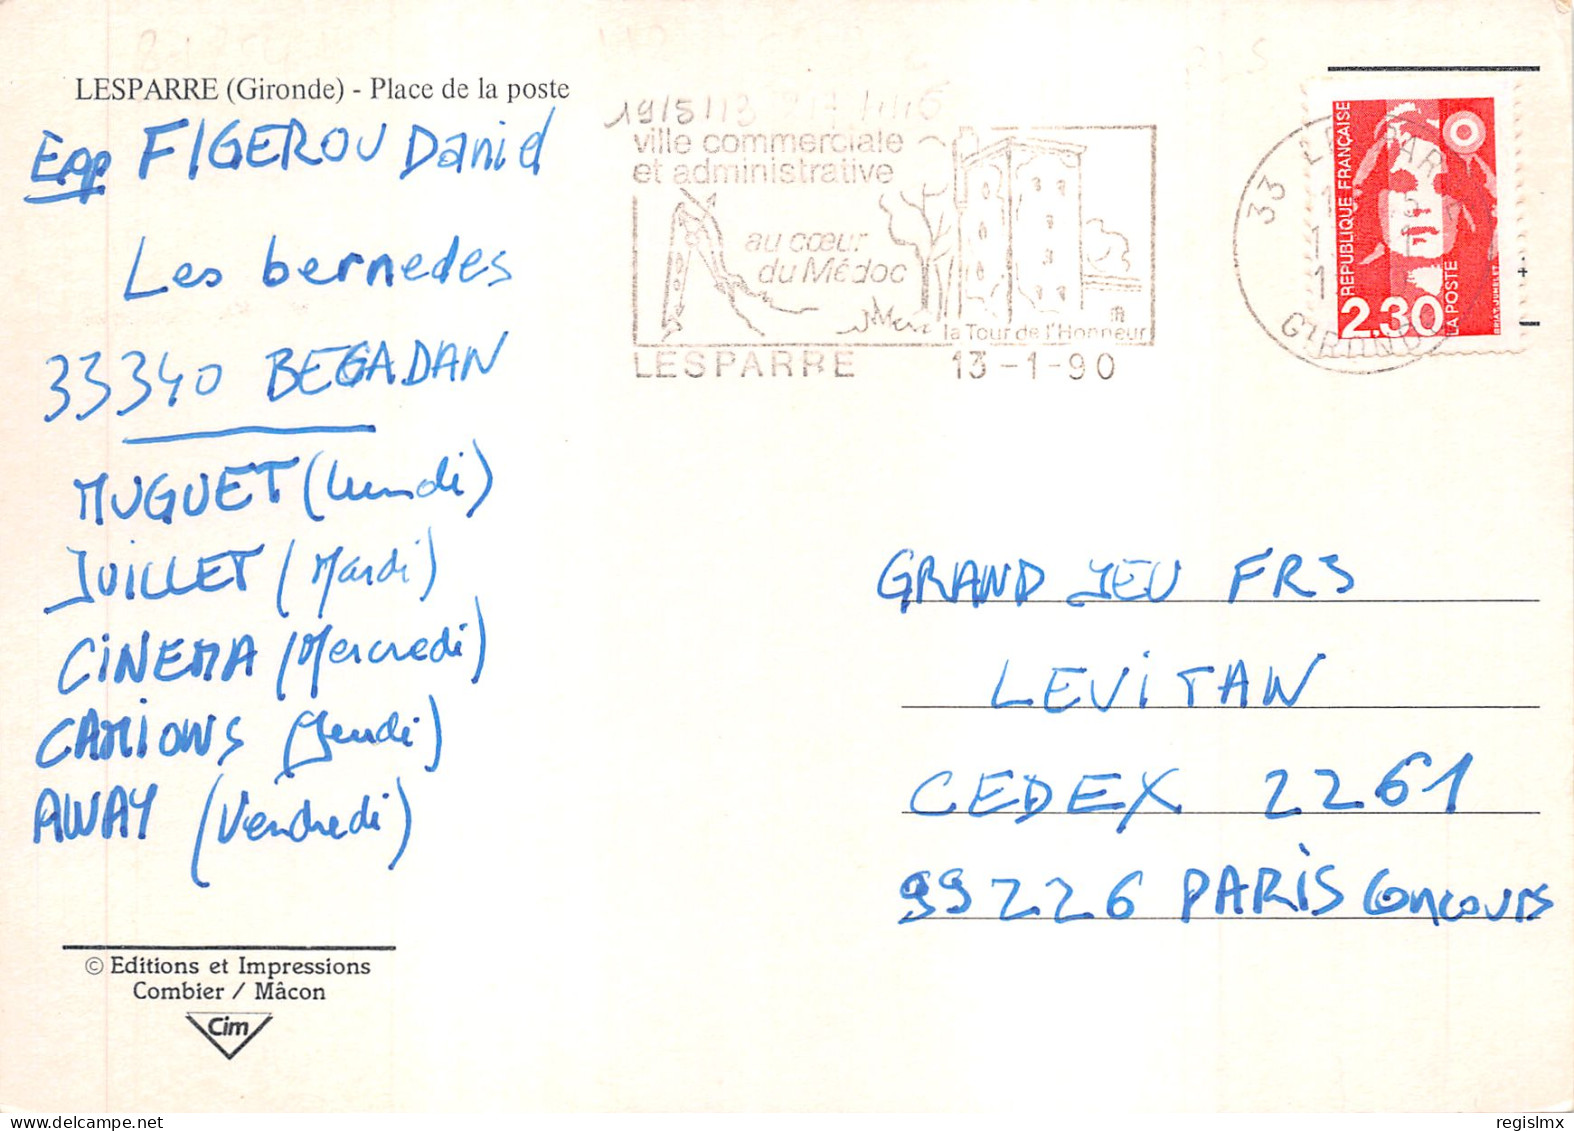 LESPARRE (Gironde) - Place de la poste
Exp FIGEROU Daniel
Les bernedes
33340 BEGADAN
MUGUET (lundi)
JUILLET (Mardi)
CINEMA (Mercredi)
CAMIONS (Jeudi)
AWAY (Vendredi)
© Editions et Impressions
Combier / Mâcon
Cim
ville commerciale
et administrative
au cœur
du Médoc
la Tour de l'Honneur
LESPARRE 13-1-90
33 LESPARRE
GIRONDE
REPUBLIQUE FRANÇAISE
2,30
LA POSTE
GRAND JEU FR3
LEVITAN
CEDEX 2261
99226 PARIS Concours
regislmx